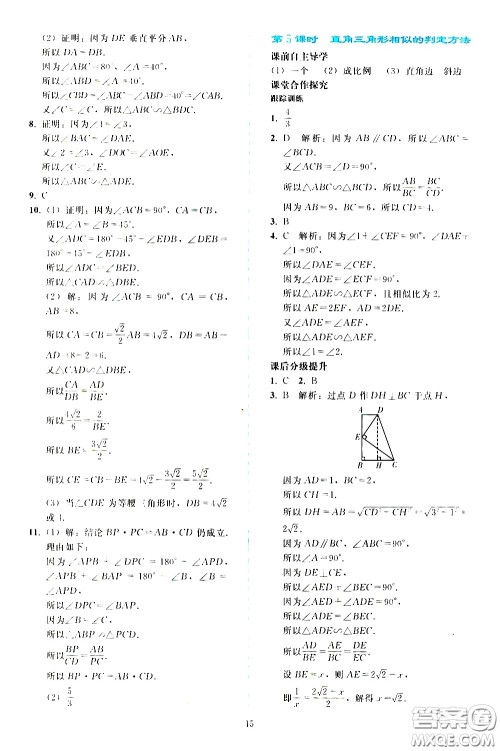 (2) 证明：因为 DE 垂直平分 AB，
所以 AD=BD.
8. 证明：因为∠1=∠3，
所以∠BAC=∠DAE.
又∠2=∠3，∠DOC=∠AOE，
所以∠C=∠E.
所以△ABC∽△ADE.
9. C
10. (1) 证明：因为∠ACB=90°，CA=CB，
所以∠A=∠B=45°.
又∠ADC=180°-45°-∠EDB，∠DEB=
180°-45°-∠EDB，
所以∠ADC=∠BED.
所以△CAD∽△DBE.
(2) 解：因为∠ACB=90°，CA=CB，
AB=8，
所以 CA=CB=√2/2 AB=4√2，DB=AB-
AD=8-2=6.
又△CAD∽△DBE，
所以 CA/DB=AD/BE.
所以 4√2/6=2/BE.
所以 BE=3√2/2.
所以 CE=CB-BE=4√2-3√2/2=5√2/2.
(3) 当△CDE 为等腰三角形时，DB=4√2
或 4.
11. (1) 解：结论 BP·PC=AB·CD 仍成立.
理由如下：
因为∠APB+∠DPC=180°-∠APD，
∠APB+∠BAP=180°-∠B，
所以∠DPC=∠BAP.
所以△ABP∽△PCD.
所以 BP/CD=AB/PC.
所以 BP·PC=AB·CD.
(2) 5/3
第 5 课时 直角三角形相似的判定方法
课前自主导学
(1) 一个 (2) 成比例 (3) 直角边 斜边
课堂合作探究
跟踪训练
1. 4/3
2. D 解析：因为 AB∥CD，所以∠ABC=
∠BCD.
因为∠A=∠CBD=90°，
所以△ABC∽△BCD，所以 AB/BC=BC/CD.
因为 AB=9，BC=6，所以 CD=4.
3. B
4. C 解析：因为∠1+∠CEF=90°，∠DAE+
∠1=90°，
所以∠DAE=∠CEF.
所以△ADE∽△ECF，且相似比为 2.
所以 AE=2EF，AD=2DE.
又∠ADE=∠AEF，
所以△ADE∽△AEF.
课后分级提升
1. C 2. B
3. B 解析：过点 D 作 DH⊥BC 于点 H，
A
D
E
B
H
C
因为 AD=1，BC=2，
所以 CH=1.
所以 DH=AB=√(CD²-CH²)=√(3²-1²)=
2√2.
因为 AD∥BC，∠ABC=90°，
所以∠A=90°.
因为 DE⊥CE，
所以∠AED+∠BEC=90°.
因为∠AED+∠ADE=90°，
所以∠ADE=∠BEC.
所以△ADE∽△BEC.
所以 AD/BE=AE/BC=DE/EC.
设 BE=x，则 AE=2√2-x，
即 1/x=(2√2-x)/2，解得 x=√2.
15
答案圈
MXQE.COM